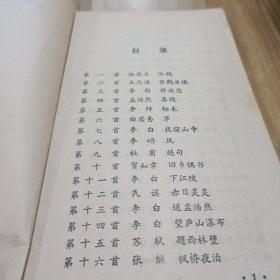 目录
第一首 骆宾王 咏鹅
第二首 王之涣 登鹳雀楼
第三首 李白 静夜思
第四首 孟浩然 春晓
第五首 李绅 悯农
第六首 白居易 草
第七首 李白 夜宿山寺
第八首 李峤 风
第九首 杜甫 绝句
第十首 贺知章 回乡偶书
第十一首 李白 下江陵
第十二首 民谣 赤日炎炎
第十三首 李白 送孟浩然
第十四首 李白 望庐山瀑布
第十五首 苏轼 题西林壁
第十六首 张继 枫桥夜泊
1